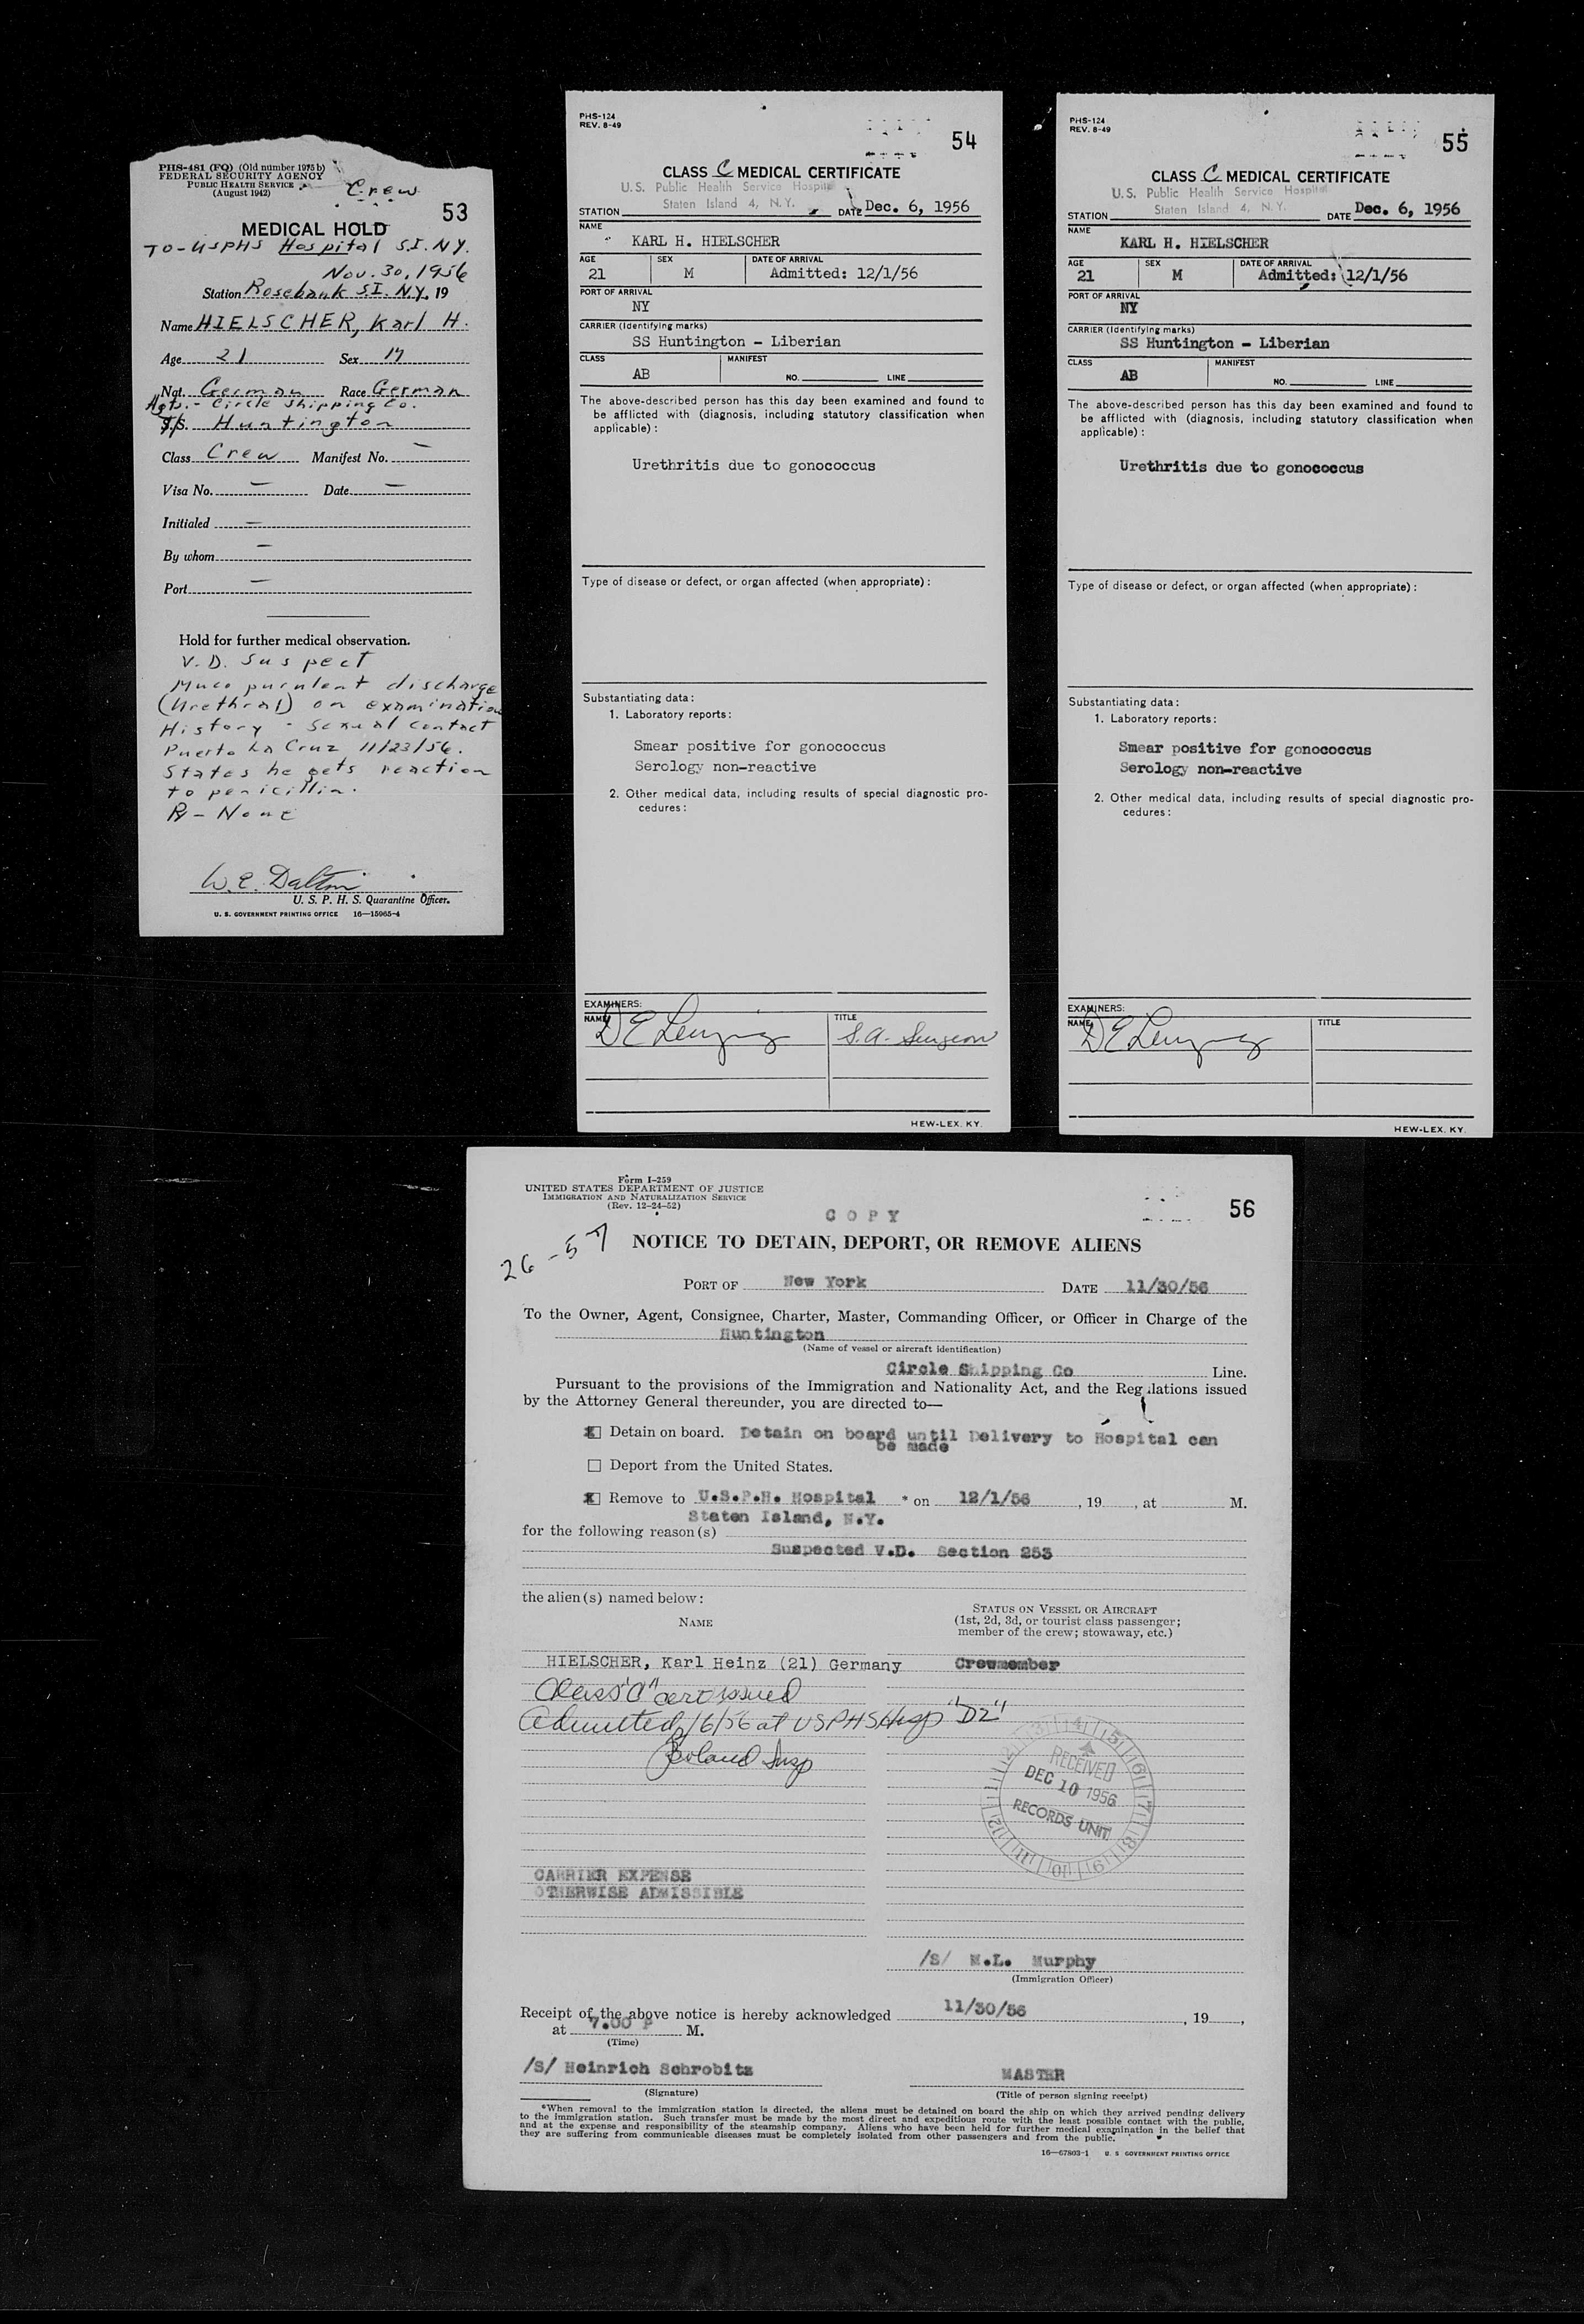 PHS-481 (FQ) (Old number 1975 b)
FEDERAL SECURITY AGENCY
PUBLIC HEALTH SERVICE
(August 1942)
Crew
53
MEDICAL HOLD
TO-USPHS Hospital S.I. N.Y.
Nov. 30, 1956
Station Rosebank S.I. N.Y. 19
Name HIELSCHER, Karl H.
Age 21 Sex M
Nat. German Race German
Agts. - Circle Shipping Co.
S/S. Huntington
Class Crew Manifest No. —
Visa No. — Date —
Initialed —
By whom —
Port —
Hold for further medical observation.
V.D. Suspect
Muco purulent discharge
(Urethral) on examination
History - Sexual contact
Puerto La Cruz 11/23/56.
States he gets reaction
to penicillin.
Rx - None
W. E. Dalton
U. S. P. H. S. Quarantine Officer.
U. S. GOVERNMENT PRINTING OFFICE 16—15965-4
PHS-124
REV. 8-49
54
CLASS C MEDICAL CERTIFICATE
U.S. Public Health Service Hospital
Staten Island 4, N.Y.
STATION DATE Dec. 6, 1956
NAME
KARL H. HIELSCHER
AGE SEX DATE OF ARRIVAL
21 M Admitted: 12/1/56
PORT OF ARRIVAL
NY
CARRIER (Identifying marks)
SS Huntington - Liberian
CLASS MANIFEST
AB NO. LINE
The above-described person has this day been examined and found to
be afflicted with (diagnosis, including statutory classification when
applicable):
Urethritis due to gonococcus
Type of disease or defect, or organ affected (when appropriate):
Substantiating data:
1. Laboratory reports:
Smear positive for gonococcus
Serology non-reactive
2. Other medical data, including results of special diagnostic pro-
cedures:
EXAMINERS:
NAME TITLE
S.A. Surgeon
HEW-LEX. KY.
PHS-124
REV. 8-49
55
CLASS C MEDICAL CERTIFICATE
U.S. Public Health Service Hospital
Staten Island 4, N.Y.
STATION DATE Dec. 6, 1956
NAME
KARL H. HIELSCHER
AGE SEX DATE OF ARRIVAL
21 M Admitted: 12/1/56
PORT OF ARRIVAL
NY
CARRIER (Identifying marks)
SS Huntington - Liberian
CLASS MANIFEST
AB NO. LINE
The above-described person has this day been examined and found to
be afflicted with (diagnosis, including statutory classification when
applicable):
Urethritis due to gonococcus
Type of disease or defect, or organ affected (when appropriate):
Substantiating data:
1. Laboratory reports:
Smear positive for gonococcus
Serology non-reactive
2. Other medical data, including results of special diagnostic pro-
cedures:
EXAMINERS:
NAME TITLE
HEW-LEX. KY.
Form I-259
UNITED STATES DEPARTMENT OF JUSTICE
IMMIGRATION AND NATURALIZATION SERVICE
(Rev. 12-24-52)
COPY
56
26-57
NOTICE TO DETAIN, DEPORT, OR REMOVE ALIENS
PORT OF New York DATE 11/30/56
To the Owner, Agent, Consignee, Charter, Master, Commanding Officer, or Officer in Charge of the
Huntington
(Name of vessel or aircraft identification)
Circle Shipping Co Line.
Pursuant to the provisions of the Immigration and Nationality Act, and the Regulations issued
by the Attorney General thereunder, you are directed to—
X Detain on board. Detain on board until Delivery to Hospital can
be made
☐ Deport from the United States.
X Remove to U.S.P.H. Hospital * on 12/1/56, 19 , at M.
Staten Island, N.Y.
for the following reason(s)
Suspected V.D. Section 253
the alien(s) named below:
NAME
STATUS ON VESSEL OR AIRCRAFT
(1st, 2d, 3d, or tourist class passenger;
member of the crew; stowaway, etc.)
HIELSCHER, Karl Heinz (21) Germany Crewmember
Class "C" cert issued
Admitted 12/6/56 at USPHS Hosp "D2"
Insp
RECEIVED
DEC 10 1956
RECORDS UNIT
CARRIER EXPENSE
OTHERWISE ADMISSIBLE
/S/ M.L. Murphy
(Immigration Officer)
Receipt of the above notice is hereby acknowledged 11/30/56, 19 ,
at 7.00 P M.
(Time)
/S/ Heinrich Schrobitz MASTER
(Signature) (Title of person signing receipt)
*When removal to the immigration station is directed, the aliens must be detained on board the ship on which they arrived pending delivery
to the immigration station. Such transfer must be made by the most direct and expeditious route with the least possible contact with the public,
and at the expense and responsibility of the steamship company. Aliens who have been held for further medical examination in the belief that
they are suffering from communicable diseases must be completely isolated from other passengers and from the public.
16—67803-1 U. S. GOVERNMENT PRINTING OFFICE